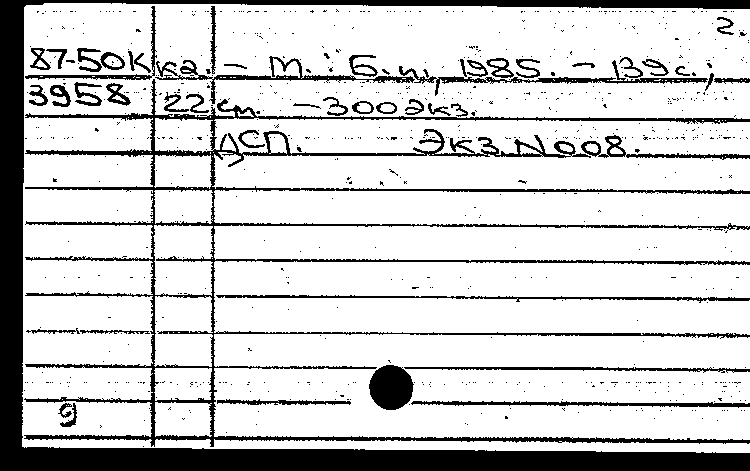 2.
87-50К ка. – М. : Б. и., 1985. – 139 с.;
3958 22 см. – 300 экз.
ДСП. Экз. N 008.
9